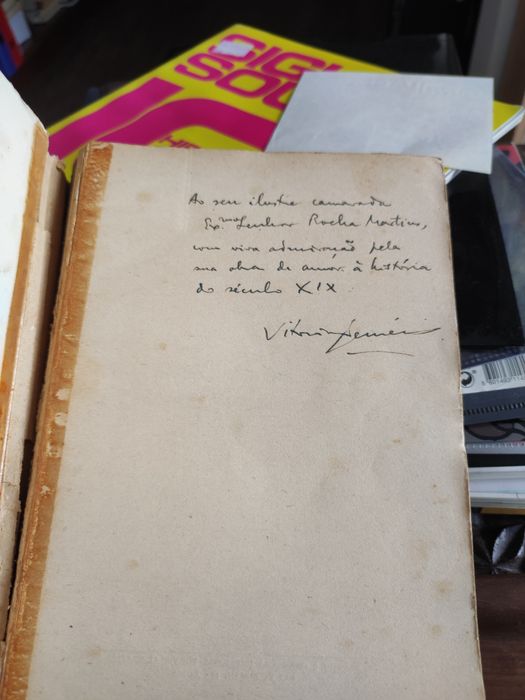 SIGI
SOC
Ao seu ilustre camarada
Ex.mo Senhor Rocha Martins,
com viva admiração pela
sua obra de amor à história
do século XIX.
Vitorino Nemésio